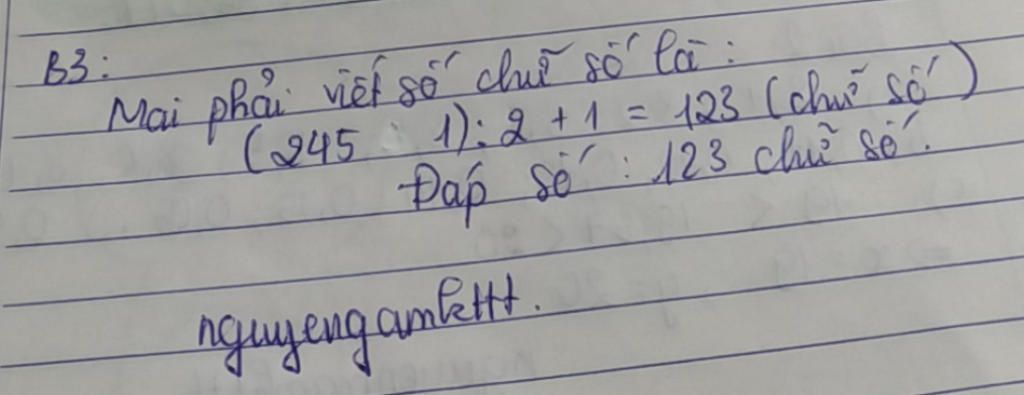 B3:
Mai phải viết số chữ số là:
(245 - 1): 2 + 1 = 123 (chữ số)
Đáp số: 123 chữ số.
nguyengamkttt.